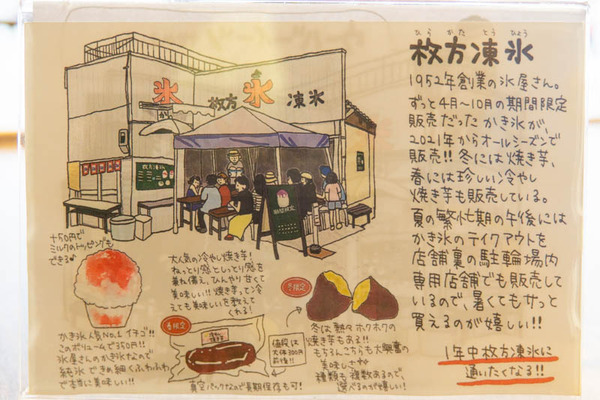 ひらかたとうひょう
枚方凍氷
1952年創業の氷屋さん。
ずっと4月~10月の期間限定
販売だったかき氷が、
2021年からオールシーズンで
販売!!冬には焼き芋、
春には珍しい冷やし
焼き芋も販売している。
夏の繁忙期の午後には
かき氷のテイクアウトを
店舗裏の駐輪場内
専用店舗でも販売して
いるので、暑くてもサッと
買えるのが嬉しい!!
1年中枚方凍氷に
通いたくなる!!
氷
枚方
氷
凍氷
枚方凍氷
+50円で
ミルクのトッピングも
できる♪
かき氷人気No.1 イチゴ!!
このボリュームで350円!!
氷屋さんのかき氷なので
純氷 できめ細くふわふわ
で本当に美味しい!!
大人気の冷やし焼き芋!
ねっとり感としっとり感を
兼ね備え、ひんやり甘くて
美味しい!!焼き芋って冷
えても美味しいを教えて
くれる!
春限定
値段は
大体300円
前後!!
真空パックなので長期保存も可!
冬限定
冬は熱々ホクホクの
焼き芋もある!!
もちろんこちらも大興奮の
美味しさ♡
種類も複数あるので、
選べるのが嬉しい!